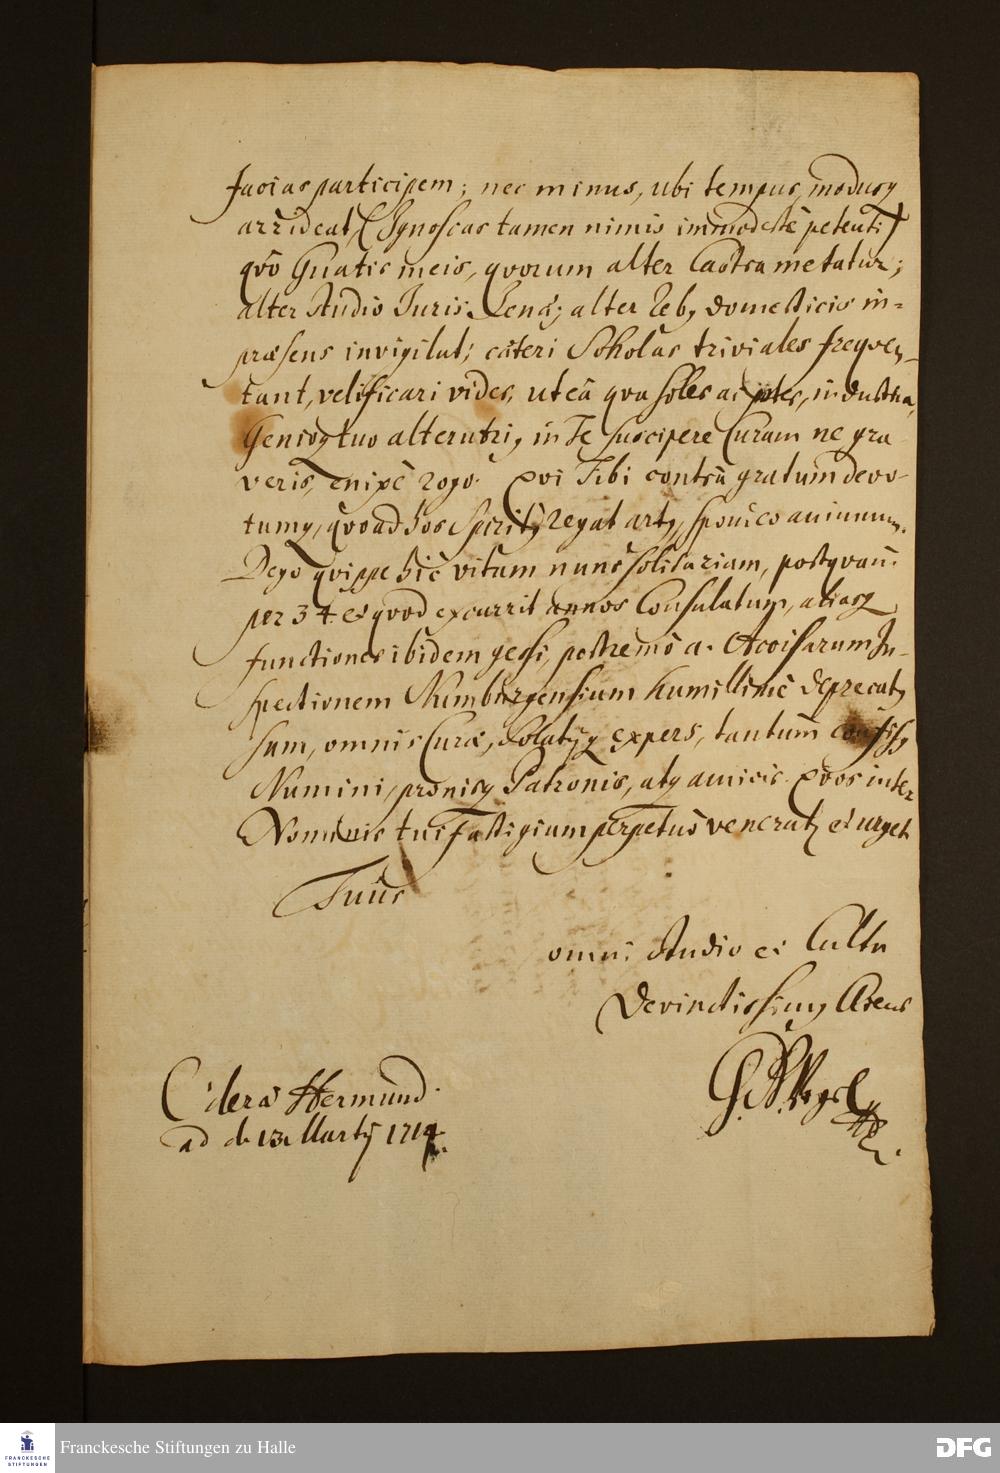 facias participem; nec minus, ubi tempus, modusq
arrideat, (Ignoscas tamen nimis immodestè petenti)
qvo Gnatis meis, qvorum alter Castra metatur;
alter Studio Juris Jenæ; alter reb9 domesticis in-
præsens invigilat; cæteri Scholas triviales freqven-
tant, velificari vides, ut eâ qva solles ac potes, industria,
Geniog tuo alterutri9 in Te suscipere Curam ne gra-
veris, enixè rogo. Qvi Tibi contrà gratum devo-
tumq, qvoad hos Spirit9 regat art9, spondeo animum.
Dego qvippe hîc vitam nunc solitariam, postqvam
per 34. et qvod excurrit annos Consulatum, aliasq
functiones ibidem gessi, postremò a. Accisarum In-
spectionem Numburgensium humillimè deprecat9
sum, omnis Curæ, Solatijq expers, tantum confis9
Numini, pronisq Patronis, atq amicis. Qvos inter
Nominis tui fastigium perpetuò venerat et urget
Tuus
omni Studio et Cultu
devinctissim9
G. A. Vogel
Hermund.
ad d. 13 Martij 1714.
Franckesche Stiftungen zu Halle
FRANCKESCHE STIFTUNGEN
DFG